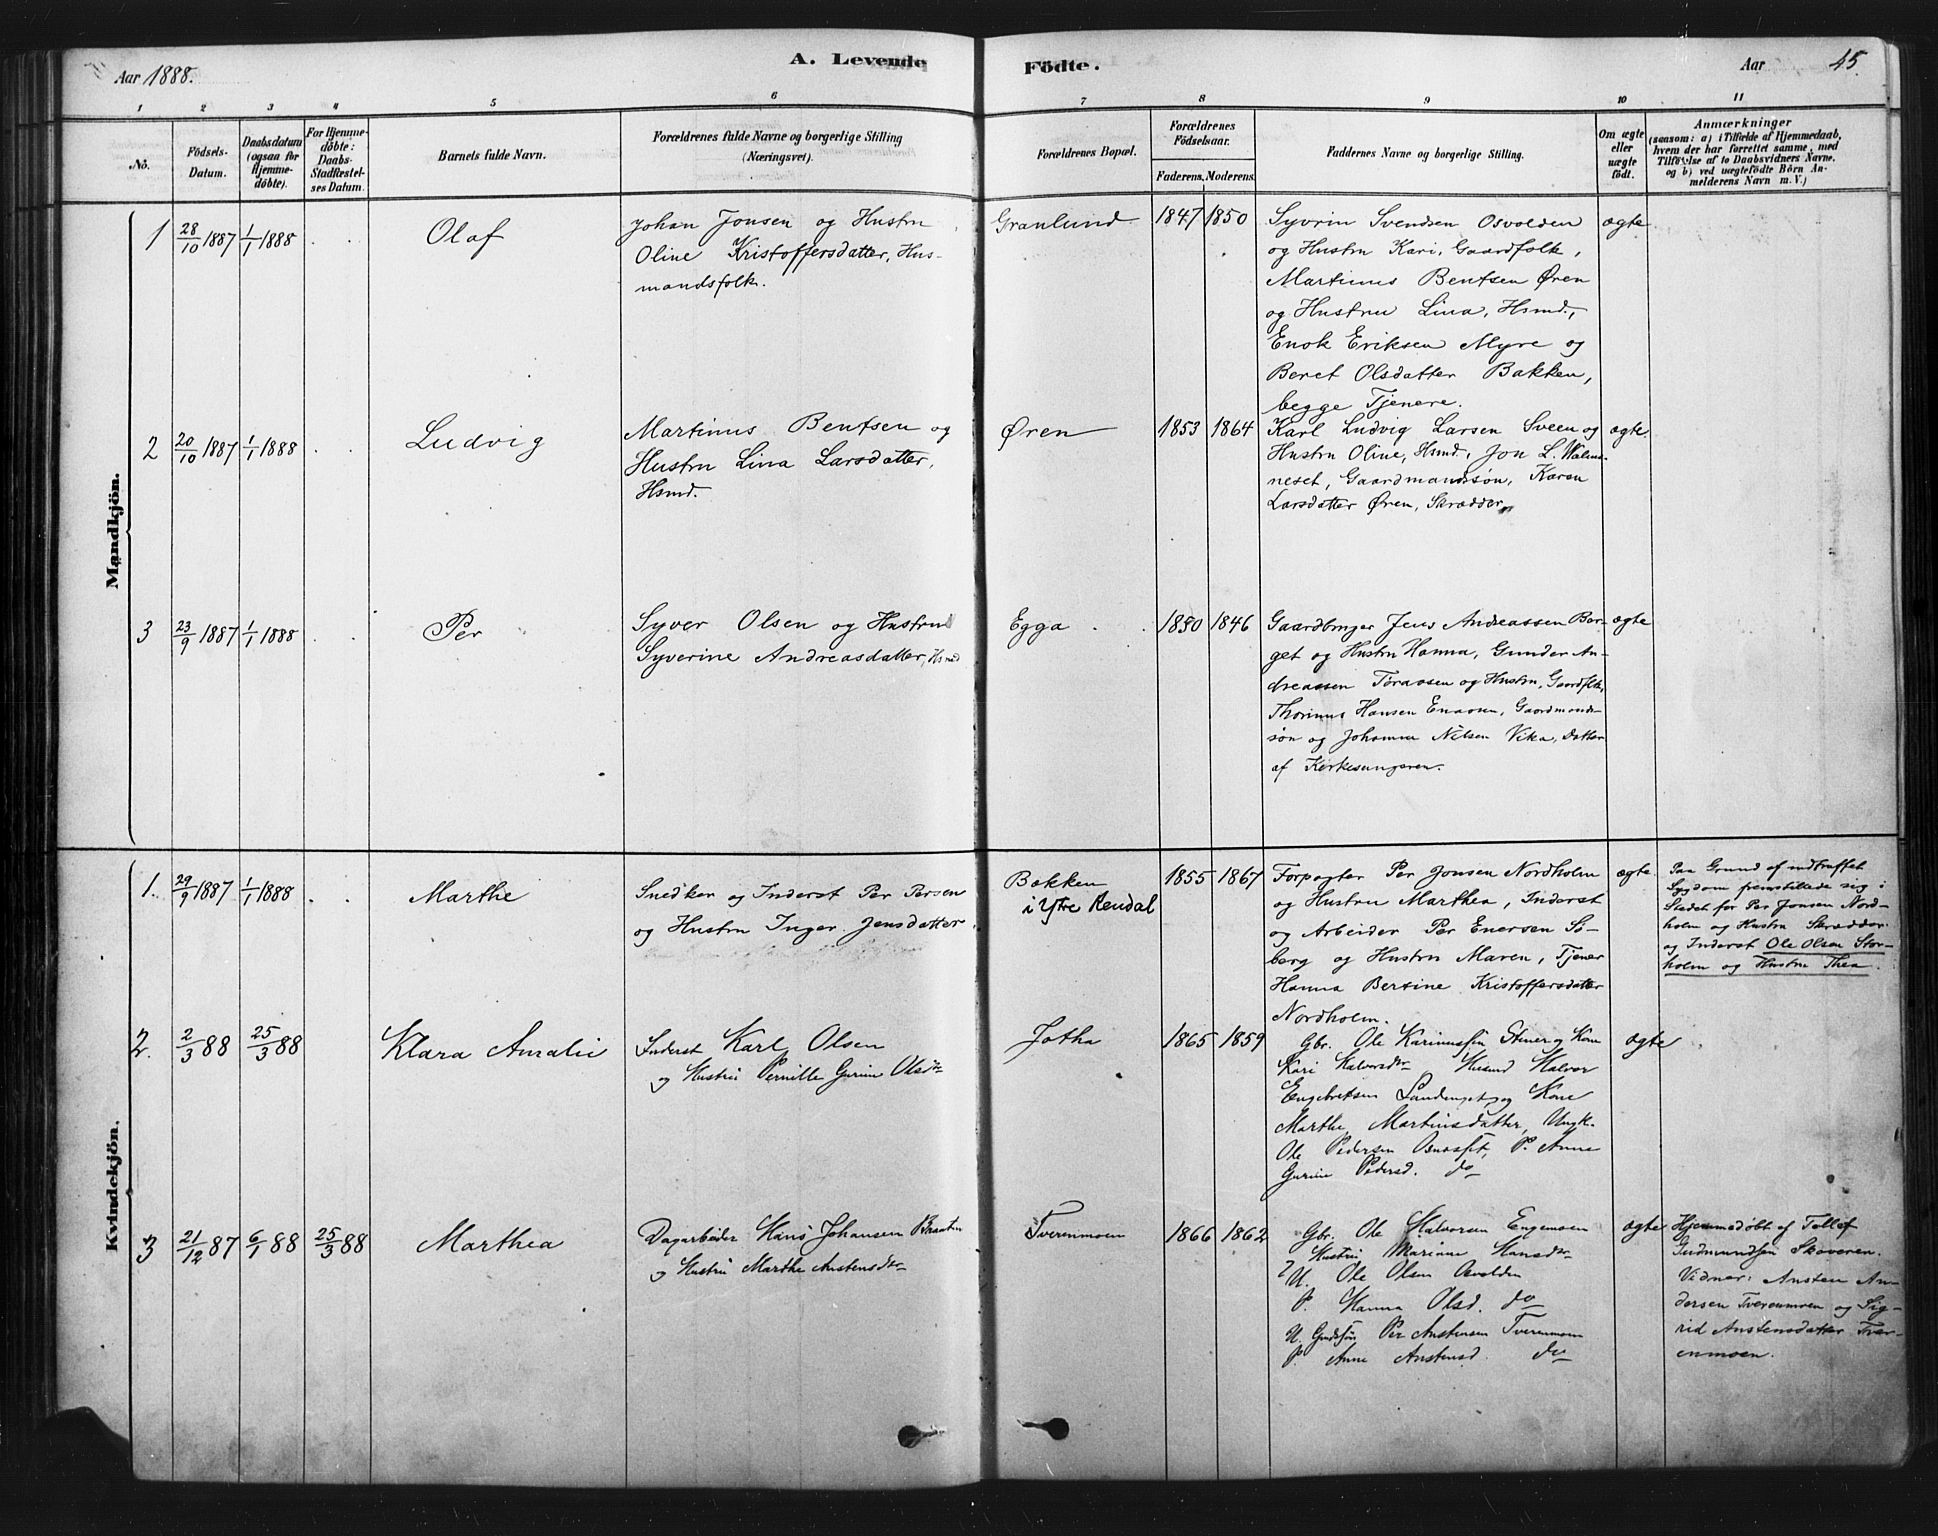 Aar 1888.
A. Levende
Födte.
Aar
45.
1 2 3 4 5 6 7 8 9 10 11
No.
Födsels-
Datum.
Daabsdatum
(ogsaa for
Hjemme-
döbte).
For Hjemme-
döbte:
Daabs-
Stadfæstel-
ses Datum.
Barnets fulde Navn.
Forældrenes fulde Navne og borgerlige Stilling
(Næringsvei).
Forældrenes Bopæl.
Forældrenes
Födselsaar.
Faderens. Moderens.
Faddernes Navne og borgerlige Stilling.
Om ægte
eller
uægte
født.
Anmærkninger
(saasom: a) i Tilfælde af Hjemmedaab,
hvem der har forrettet samme, med
Tilföielse af to Daabsvidners Navne,
og b) ved uægtefödte Börn An-
melderens Navn m. V.)
Mandkjön.
1 28/10 1887 1/1 1888 Olaf
Johan Jonsen og Hustru
Oline Kristoffersdatter, Hus-
mandsfolk.
Granlund 1847 1850
Syvrin Svendsen Osvolden
og Hustru Kari, Gaardfolk,
Martinus Bentsen Øren
og Hustru Lina, Hsmd.,
Enok Eriksen Myre og
Beret Olsdatter Bakken,
begge Tjenere.
ægte
2 20/10 1887 1/1 1888 Ludvig
Martinus Bentsen og
Hustru Lina Larsdatter,
Hsmd.
Øren 1853 1864
Karl Ludvig Larsen Sveen og
Hustru Oline, Hsmd., Jon L.
neset, Gaardmandssøn, Karen
Larsdatter Øren, Skrædder
ægte
3 23/9 1887 1/1 1888 Per
Syver Olsen og Hustru
Syverine Andreasdatter, Hsmd
Egga 1850 1846
Gaardbruger Jens Andreassen Bor-
get og Hustru Hanna, Gunder An-
dreassen Toraasen og Hustru, Gaardfolk,
Thorinus Hansen Enaasen, Gaardmands-
søn og Johanna Nilsen Vika, Datter
af Kirkesangeren.
ægte
Kvindekjön.
1. 29/9 1887 1/1 1888 Marthe
Snedker og Inderst Per Persen
og Hustru Inger Jensdatter.
Bakken
i Ytre Rendal
1855 1867
Forpagter Per Jonsen Nordholm
og Hustru Marthea, Inderst
og Arbeider Per Enersen So-
berg og Hustru Maren, Tjener
Hanna Bersine Kristoffersdatter
Nordholm.
ægte
Paa Grund af indtruffet
Sygdom fremstillede sig i
Stedet for Per Jonsen Nord-
holm og Hustru Skrædder
og Inderst Ole Olsen Stor-
holm og Hustru Thea.
2. 2/3 88 25/3 88 Klara Amalie
Inderst Karl Olsen
og Hustru Pernille Gurine Olsdtr
Jotha 1865 1859
Gbr. Ole Karinussen og Kone
Kari Halvorsdtr Husmd Halvor
Engebretsen og Kone
Marthe Martinusdatter, Ungk.
Ole Pedersen P. Anne
Gurine Pedersd. do
ægte
3 21/12 87 6/1 88 25/3 88 Marthea
Dagarbeider Hans Johansen
og Hustru Marthe Austensdtr
Tverenmoen 1866 1862
Gbr. Ole Halvorsen Engemoen
Hustru Mariane Hansdtr
U. Ole Olsen Osvolden
P. Hanna Olsd. do
U. Gaardssøn Per Austensen Tverenmoen
P. Anne Austensd. do
ægte
Hjemmedøbt af Tollef
Gudmundsen Skoveren.
Vidner: Austen An-
dersen Tverenmoen og Sig-
rid Austensdatter Tver-
enmoen.